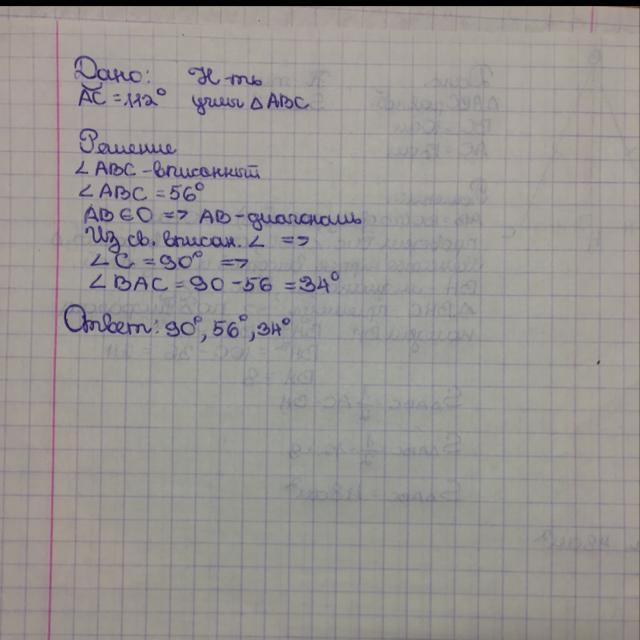 Дано: Н-ть
AC = 112° углы △ ABC
Решение
∠ ABC - вписанный
∠ ABC = 56°
AB ∈ O => AB - диагональ
Из св. вписан. ∠ =>
∠ C = 90° =>
∠ BAC = 90 - 56 = 34°
Ответ: 90°, 56°, 34°